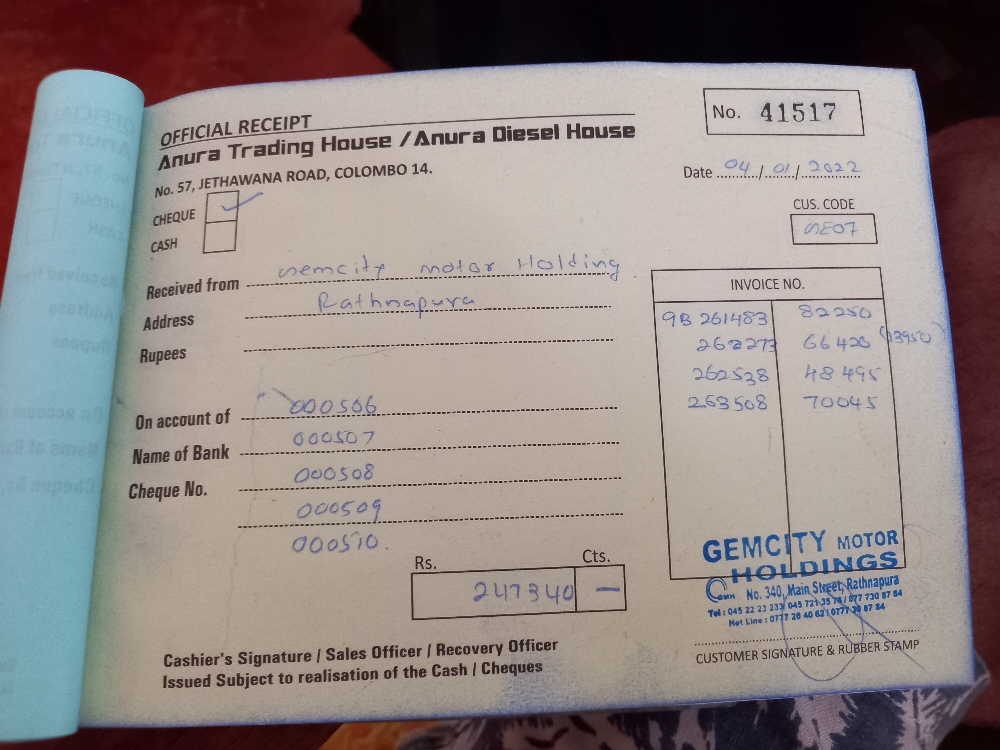 OFFICIAL RECEIPT
Anura Trading House / Anura Diesel House
No. 57, JETHAWANA ROAD, COLOMBO 14.
No. 41517
Date 04/01/2022
CHEQUE ✓
CASH
CUS. CODE
GE07
Received from Gemcity motor Holding
Address Rathnapura
Rupees
INVOICE NO.
9B 261483 82250
262273 66420 (13950)
262538 48495
263508 70045
On account of 000506
Name of Bank 000507
Cheque No. 000508
000509
000510.
Rs. Cts.
247340 —
GEMCITY MOTOR
HOLDINGS
No. 340, Main Street, Rathnapura
Tel : 045 22 23 233
Hot Line : 0777
CUSTOMER SIGNATURE & RUBBER STAMP
Cashier's Signature / Sales Officer / Recovery Officer
Issued Subject to realisation of the Cash / Cheques